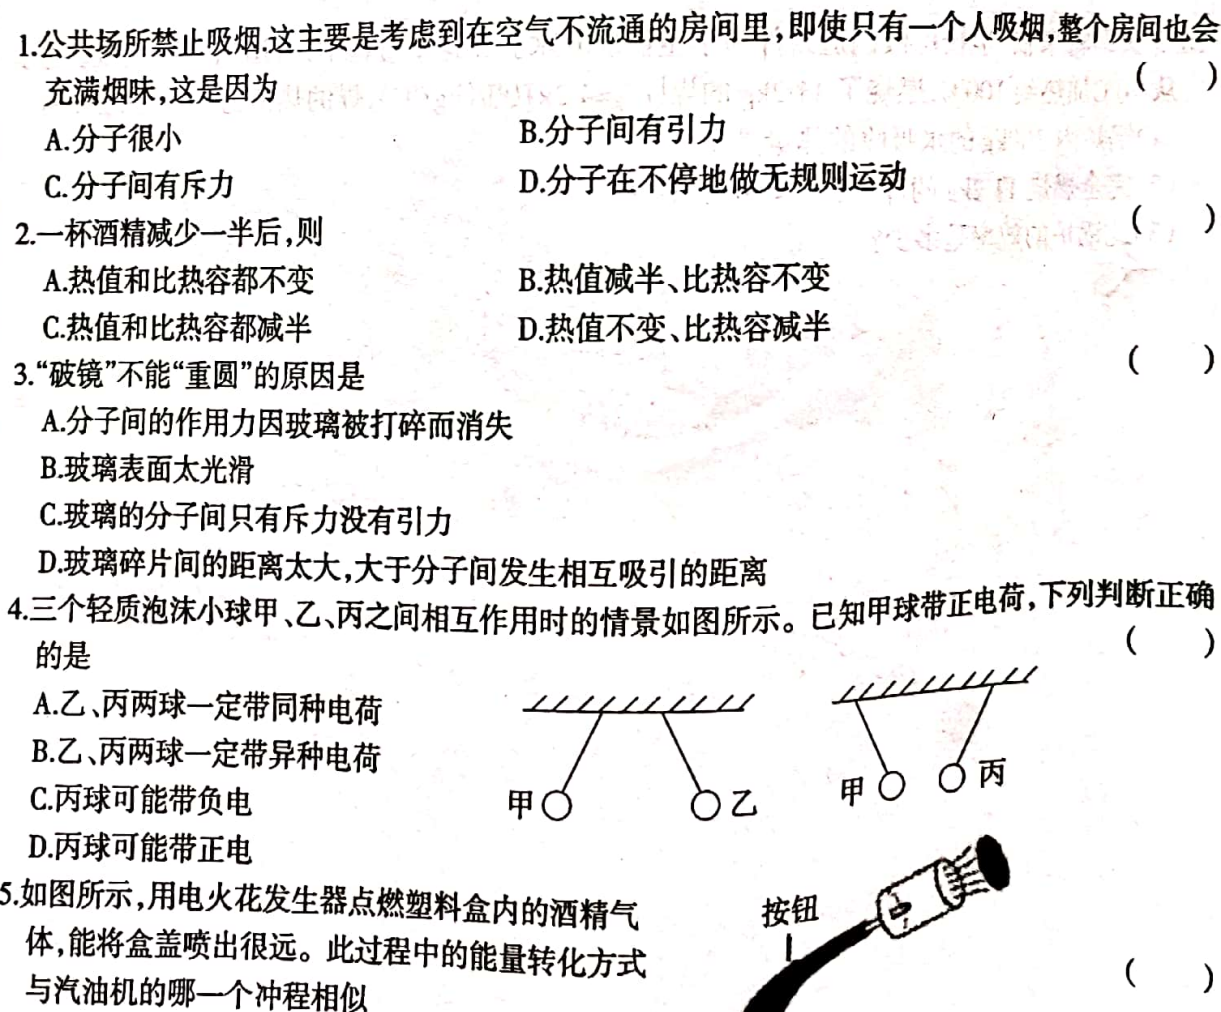 1.公共场所禁止吸烟.这主要是考虑到在空气不流通的房间里,即使只有一个人吸烟,整个房间也会
充满烟味,这是因为 ( )
A.分子很小 B.分子间有引力
C.分子间有斥力 D.分子在不停地做无规则运动
2.一杯酒精减少一半后,则 ( )
A.热值和比热容都不变 B.热值减半、比热容不变
C.热值和比热容都减半 D.热值不变、比热容减半
3.“破镜”不能“重圆”的原因是 ( )
A.分子间的作用力因玻璃被打碎而消失
B.玻璃表面太光滑
C.玻璃的分子间只有斥力没有引力
D.玻璃碎片间的距离太大,大于分子间发生相互吸引的距离
4.三个轻质泡沫小球甲、乙、丙之间相互作用时的情景如图所示。已知甲球带正电荷,下列判断正确
的是 ( )
A.乙、丙两球一定带同种电荷
B.乙、丙两球一定带异种电荷
C.丙球可能带负电
D.丙球可能带正电
甲 乙 甲 丙
5.如图所示,用电火花发生器点燃塑料盒内的酒精气
体,能将盒盖喷出很远。此过程中的能量转化方式
与汽油机的哪一个冲程相似 ( )
按钮